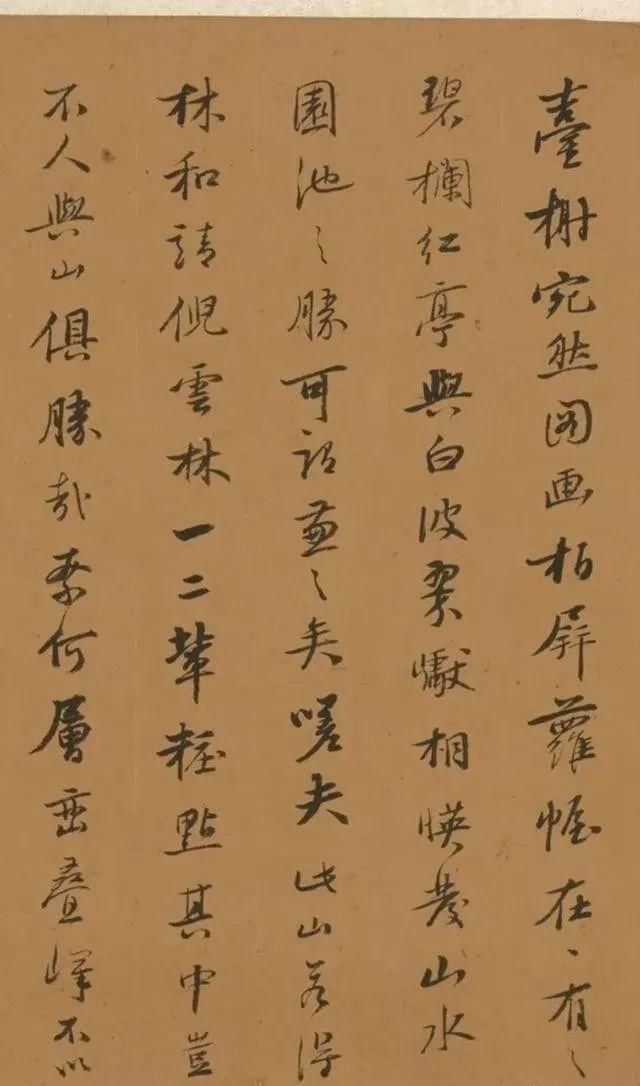 臺榭宛然圖画柏屏蘿幄在〻有〻
碧欄紅亭與白波翠巘相暎發山水
園池之勝可謂兼之矣嗟夫此山若得
林和靖倪雲林一二輩粧點其中豈
不人與山俱勝哉柰何層巒疊嶂不以